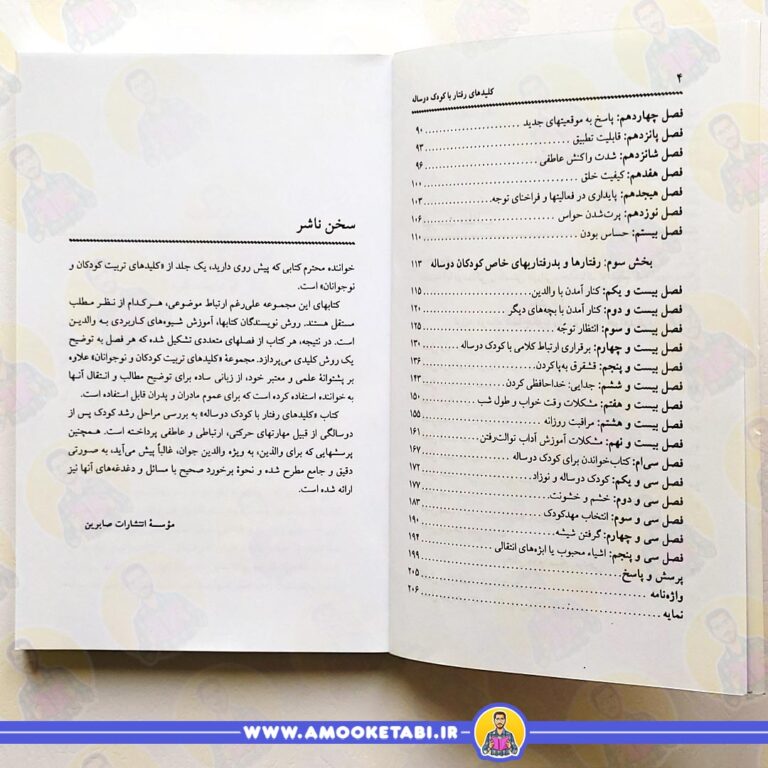 ۴
کلیدهای رفتار با کودک دوساله
فصل چهاردهم: پاسخ به موقعیتهای جدید ۹۰
فصل پانزدهم: قابلیت تطبیق ۹۳
فصل شانزدهم: شدت واکنش عاطفی ۹۶
فصل هفدهم: کیفیت خلق ۱۰۰
فصل هیجدهم: پایداری در فعالیتها و فراخنای توجه ۱۰۳
فصل نوزدهم: پرت‌شدن حواس ۱۰۶
فصل بیستم: حساس بودن ۱۱۰
بخش سوم: رفتارها و بدرفتاریهای خاص کودکان دوساله ۱۱۳
فصل بیست و یکم: کنار آمدن با والدین ۱۱۵
فصل بیست و دوم: کنار آمدن با بچه‌های دیگر ۱۲۰
فصل بیست و سوم: انتظار توجّه ۱۲۵
فصل بیست و چهارم: برقراری ارتباط کلامی با کودک دوساله ۱۳۰
فصل بیست و پنجم: قشقرق به‌پاکردن ۱۳۶
فصل بیست و ششم: جدایی: خداحافظی کردن ۱۴۳
فصل بیست و هفتم: مشکلات وقت خواب و طول شب ۱۵۰
فصل بیست و هشتم: مراقبت روزانه ۱۵۵
فصل بیست و نهم: مشکلات آموزش آداب توالت‌رفتن ۱۶۱
فصل سی‌ام: کتاب‌خواندن برای کودک دوساله ۱۶۷
فصل سی و یکم: کودک دوساله و نوزاد ۱۷۲
فصل سی و دوم: خشم و خشونت ۱۷۷
فصل سی و سوم: انتخاب مهدکودک ۱۸۳
فصل سی و چهارم: گرفتن شیشه ۱۹۰
فصل سی و پنجم: اشیاء محبوب یا ابژه‌های انتقالی ۱۹۴
پرسش و پاسخ ۱۹۹
واژه‌نامه ۲۰۵
نمایه ۲۰۶
سخن ناشر
خواننده محترم کتابی که پیش روی دارید، یک جلد از «کلیدهای تربیت کودکان و
نوجوانان» است.
کتابهای این مجموعه علی‌رغم ارتباط موضوعی، هرکدام از نظر مطلب
مستقل هستند. روش نویسندگان کتابها، آموزش شیوه‌های کاربردی به والدین
است. در نتیجه، هر کتاب از فصلهای متعددی تشکیل شده که هر فصل به توضیح
یک روش کلیدی می‌پردازد. مجموعهٔ «کلیدهای تربیت کودکان و نوجوانان» علاوه
بر پشتوانهٔ علمی و معتبر خود، از زبانی ساده برای توضیح مطالب و انتقال آنها
به خواننده استفاده کرده است که برای عموم مادران و پدران قابل استفاده است.
کتاب «کلیدهای رفتار با کودک دوساله» به بررسی مراحل رشد کودک پس از
دوسالگی از قبیل مهارتهای حرکتی، ارتباطی و عاطفی پرداخته است. همچنین
پرسشهایی که برای والدین، به ویژه والدین جوان، غالباً پیش می‌آید، به صورتی
دقیق و جامع مطرح شده و نحوهٔ برخورد صحیح با مسائل و دغدغه‌های آنها نیز
ارائه شده است.
مؤسسهٔ انتشارات صابرین
WWW.AMOOKETABI.IR